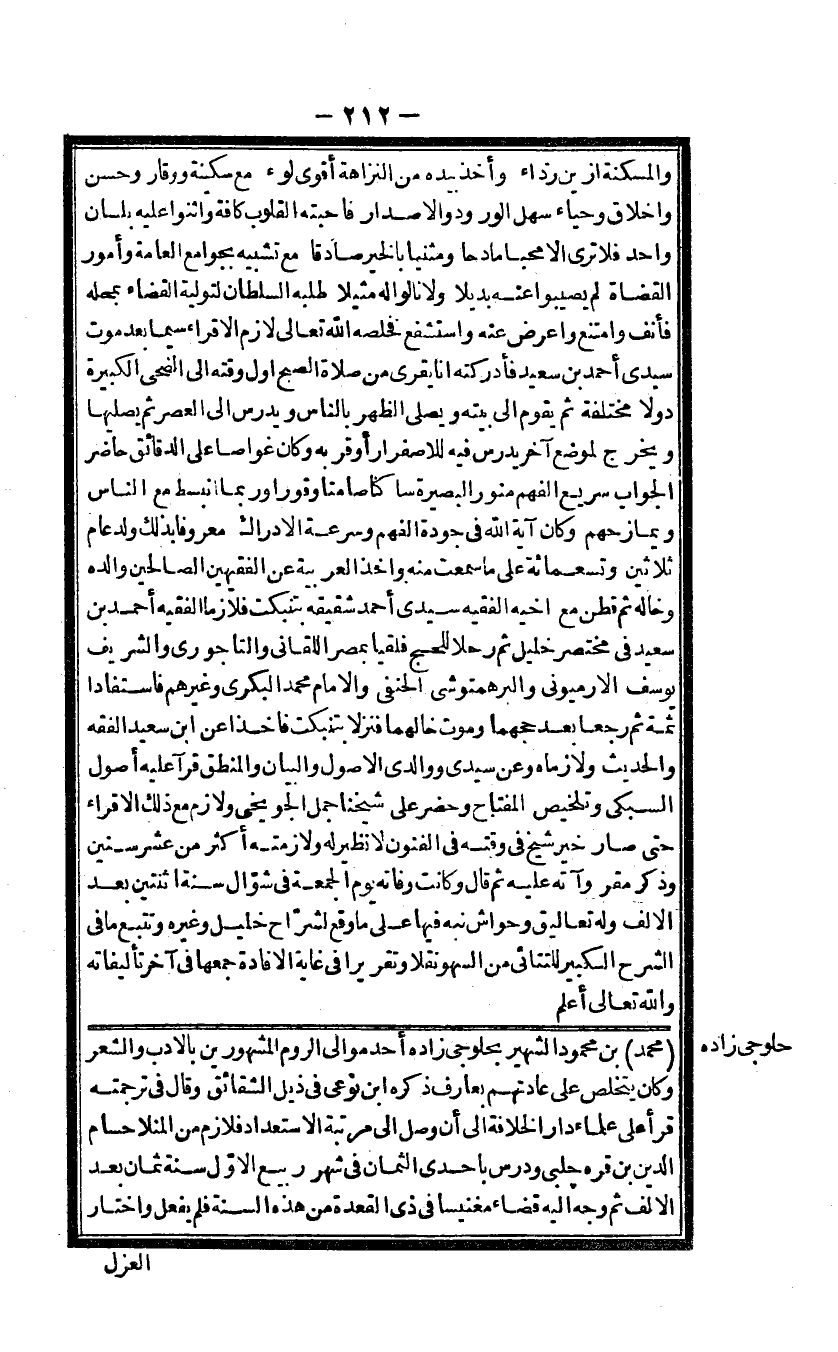 - ٢١٢ -
والمسكنة ازين رداء وأخذ بيده من النزاهة أقوى لوء مع سكينة ووقار وحسن
واخلاق وحياء سهل الورود والاصدار فاحبته القلوب كافة واثنوا عليه بلسان
واحد فلا ترى الا محبا مادحا ومثنيا بالخير صادقا مع تشبيه بجوامع العامة وأمور
القضاة لم يصيبوا عنه بديلا ولا نالوا له مثيلا طلبه السلطان لتولية القضاء بمحله
فأنف وامتنع واعرض عنه واستشفع فخلصه الله تعالى لازم الاقراء سيما بعد موت
سيدى أحمد بن سعيد فأدركته انا يقرى من صلاة الصبح اول وقته الى الضحى الكبيرة
دولا مختلفة ثم يقوم الى بيته ويصلى الظهر بالناس ويدرس الى العصر ثم يصليها
ويخرج لموضع آخر يدرس فيه للاصفرار أو قربه وكان غواصا على الدقائق حاضر
الجواب سريع الفهم منور البصيرة ساكتا صامتا وقورا وربما انبسط مع الناس
ويمازحهم وكان آية الله فى جودة الفهم وسرعة الادراك معروفا بذلك ولد عام
ثلاثين وتسعمائة على ما سمعت منه واخذ العربية عن الفقيهين الصالحين والده
وخاله ثم قطن مع اخيه الفقيه سيدى أحمد شقيقه بتنبكت فلازما الفقيه أحمد بن
سعيد فى مختصر خليل ثم رحلا للحج فلقيا بمصر اللقانى والتاجورى والشريف
يوسف الارميونى والبرهمتوشى الحنفى والامام محمد البكرى وغيرهم فاستفادا
ثمة ثم رجعا بعد حجهما وموت خالهما فنزلا بتنبكت فاخذا عن ابن سعيد الفقه
والحديث ولازماه وعن سيدى ووالدى الاصول والبيان والمنطق قرآ عليه أصول
السبكى وتلخيص المفتاح وحضر على شيخنا جمل الجو يخى ولازم مع ذلك الاقراء
حتى صار خير شيخ فى وقته فى الفنون لا نظير له ولازمته أكثر من عشر سنين
وذكر مقروآته عليه ثم قال وكانت وفاته يوم الجمعة فى شوّال سنة اثنتين بعد
الالف وله تعاليق وحواش نبه فيها على ما وقع لشرّاح خليل وغيره وتتبع ما فى
الشرح الكبير للتتائى من السهو نقلا وتقريرا فى غاية الافادة جمعها فى آخر تأليفاته
والله تعالى أعلم
حلوجى زاده
(محمد) بن محمود الشهير بحلوجى زاده أحد موالى الروم المشهورين بالادب والشعر
وكان يتخلص على عادتهم بعارف ذكره ابن نوعى فى ذيل الشقائق وقال فى ترجمته
قرأ على علماء دار الخلافة الى أن وصل الى مرتبة الاستعداد فلازم من المنلا حسام
الدين بن قره جلبى ودرس باحدى الثمان فى شهر ربيع الاوّل سنة ثمان بعد
الالف ثم وجه اليه قضاء مغنيسا فى ذى القعدة من هذه السنة فلم يفعل واختار
العزل